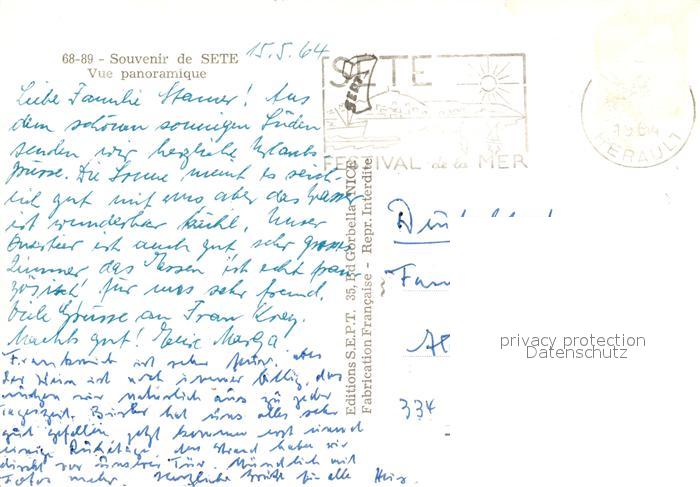 68-89 - Souvenir de SETE
Vue panoramique
15.5.64
Liebe Familie Stamer! Aus
dem schönen sonnigen Süden
senden wir herzliche Urlaubs
grüsse. Die Sonne meint es reich-
lich gut mit uns aber das Wasser
ist wunderbar kühl. Unser
Quartier ist auch gut sehr grosses
Zimmer das Essen ist echt fran-
zösisch! für uns sehr fremd.
Viele Grüsse an Frau
Machts gut! Eure
Frankreich ist sehr teuer, aber
der Wein ist noch immer billig, das
nützen wir natürlich aus zu jeder
Tageszeit. Bisher hat uns alles sehr
gut gefallen, jetzt kommen erst einmal
einige Ruhetage, den Strand haben wir
direkt vor unserer Tür. Mündlich mit
Fotos mehr. Herzliche Grüße für alle
SETE
FESTIVAL de la MER
1964
HERAULT
Editions S.E.P.T. 35, Bd Gorbella, NICE
Fabrication Française - Repr. Interdite
Fam
334
privacy protection
Datenschutz